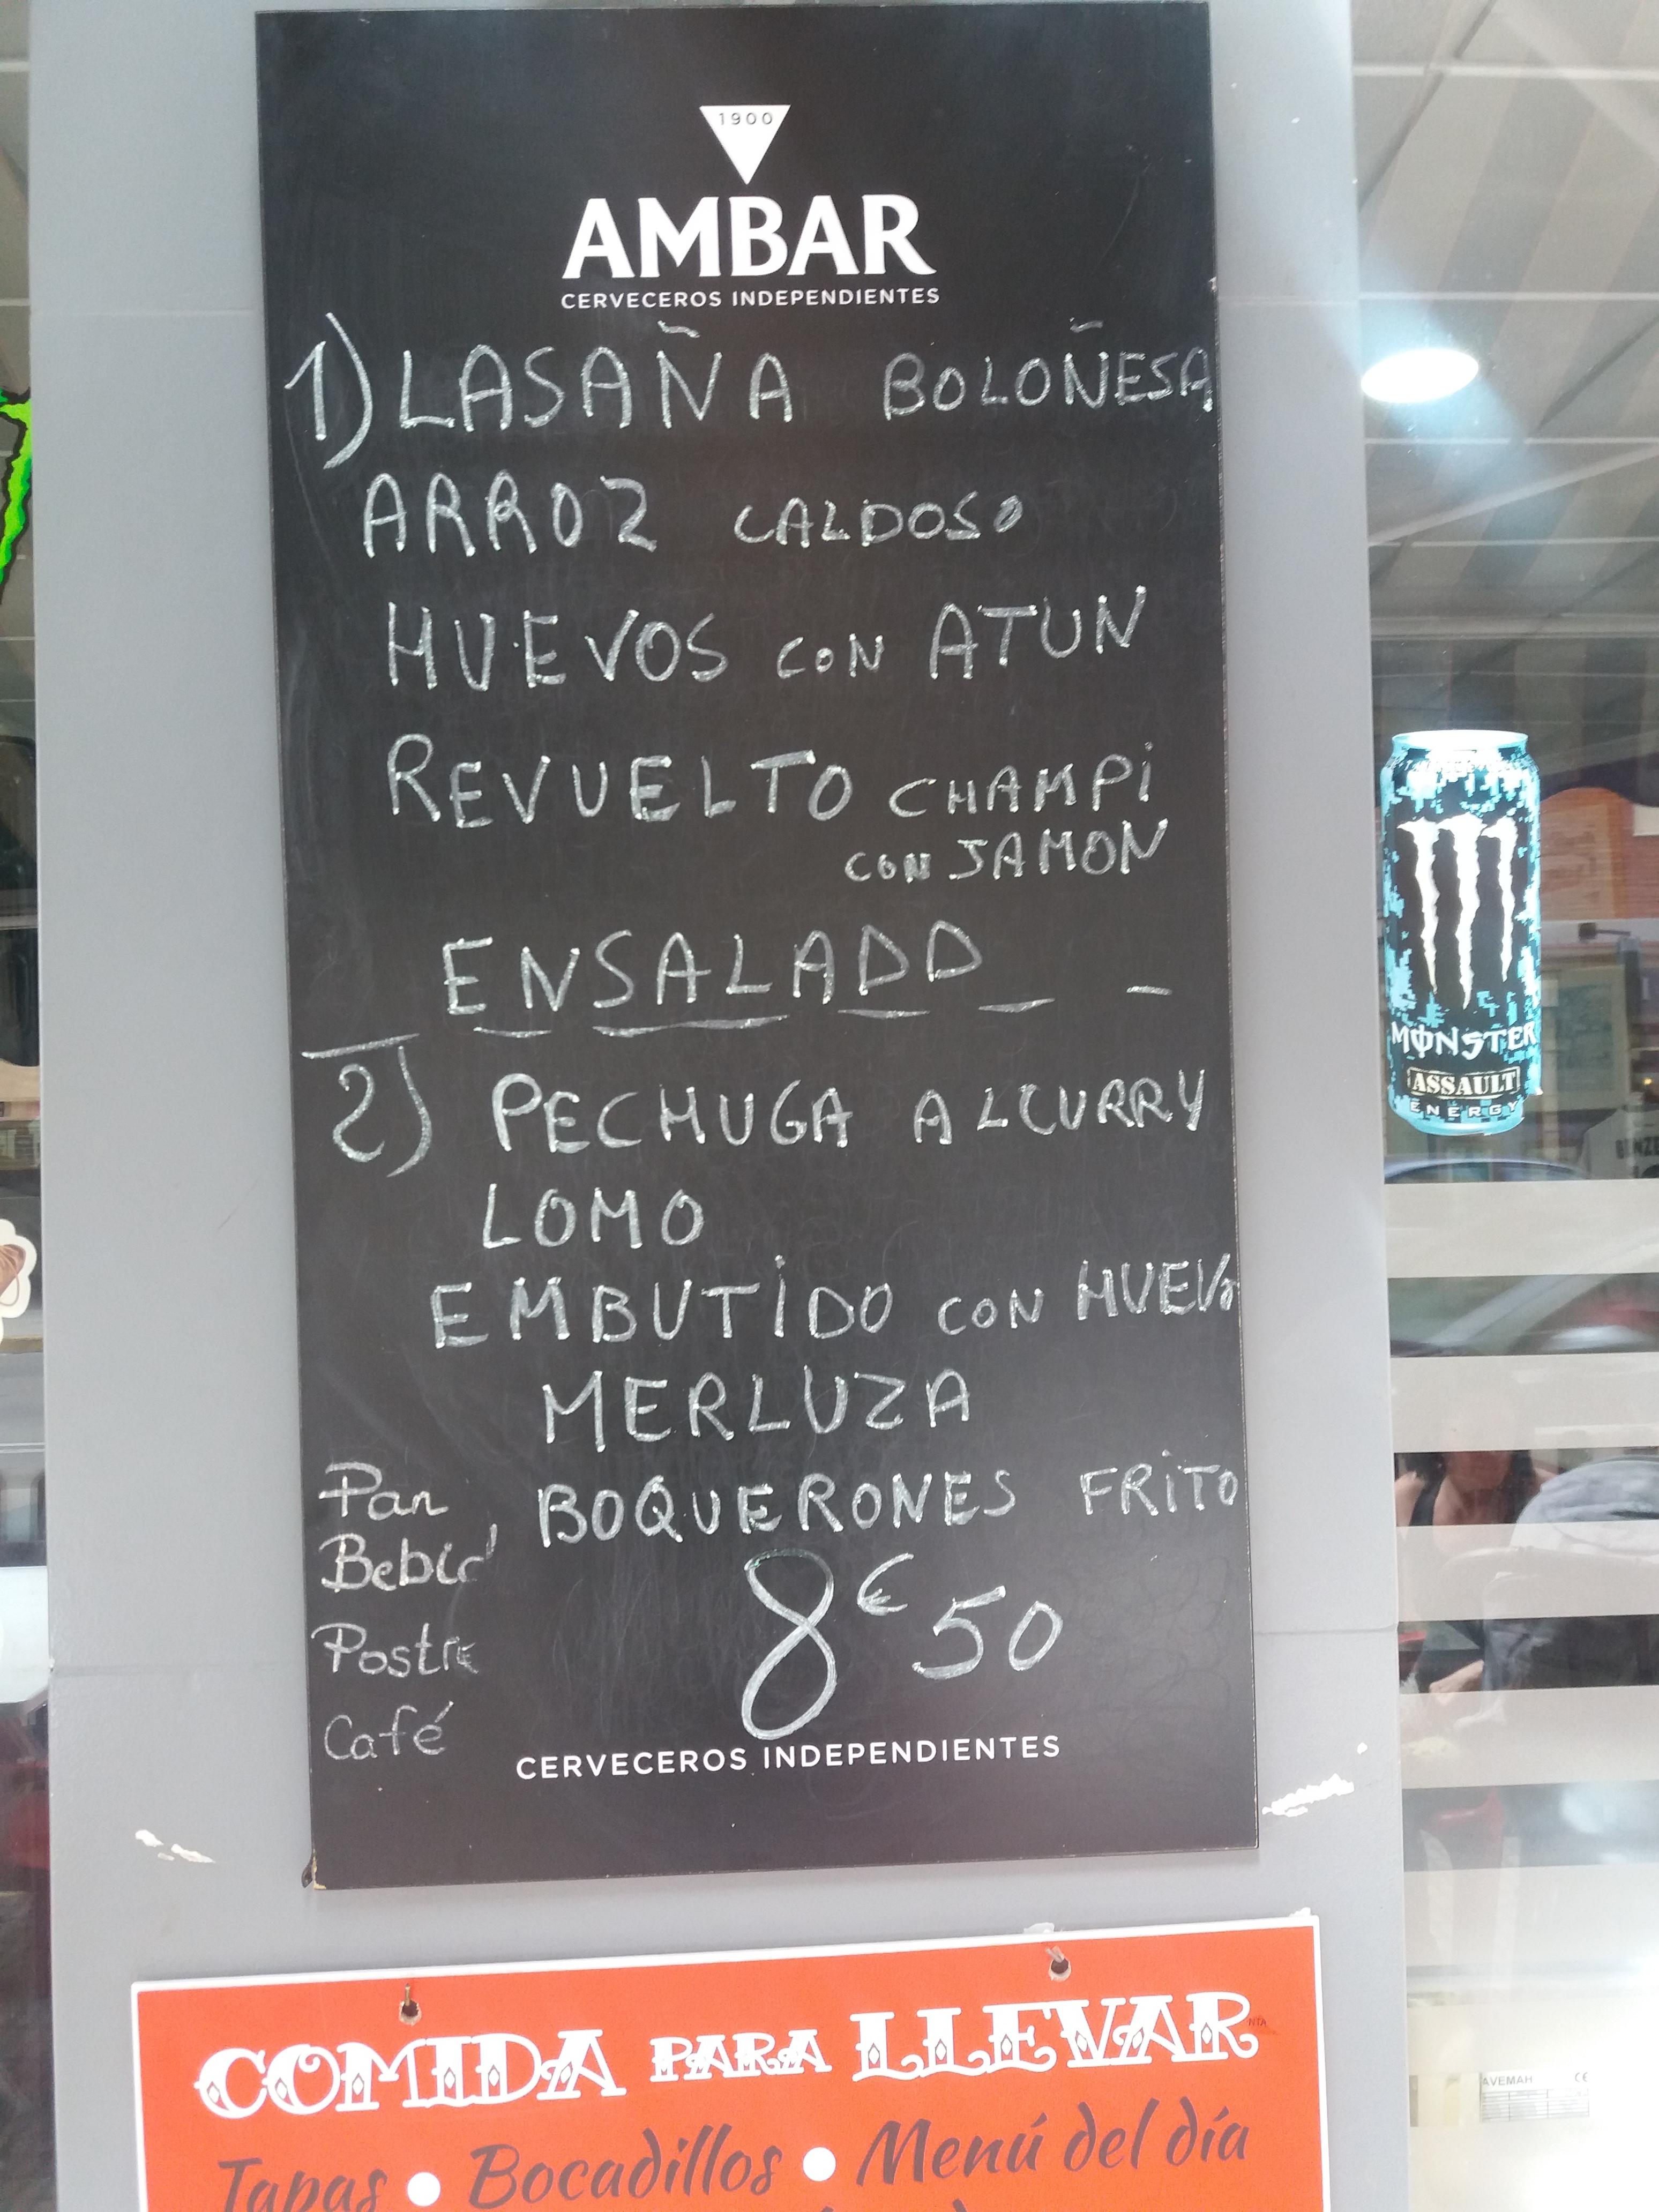 1900
AMBAR
CERVECEROS INDEPENDIENTES
1) LASAÑA BOLOÑESA
ARROZ CALDOSO
HUEVOS CON ATUN
REVUELTO CHAMPi
CON JAMON
ENSALADD
2) PECHUGA AL CURRY
LOMO
EMBUTiDO CON HUEVO
MERLUZA
BOQUERONES FRiTO
Pan
Bebid
Postre
Café
8€50
CERVECEROS INDEPENDIENTES
COMIDA PARA LLEVAR
Tapas • Bocadillos • Menú del día
MONSTER
ASSAULT
ENERGY
AVEMAH CE